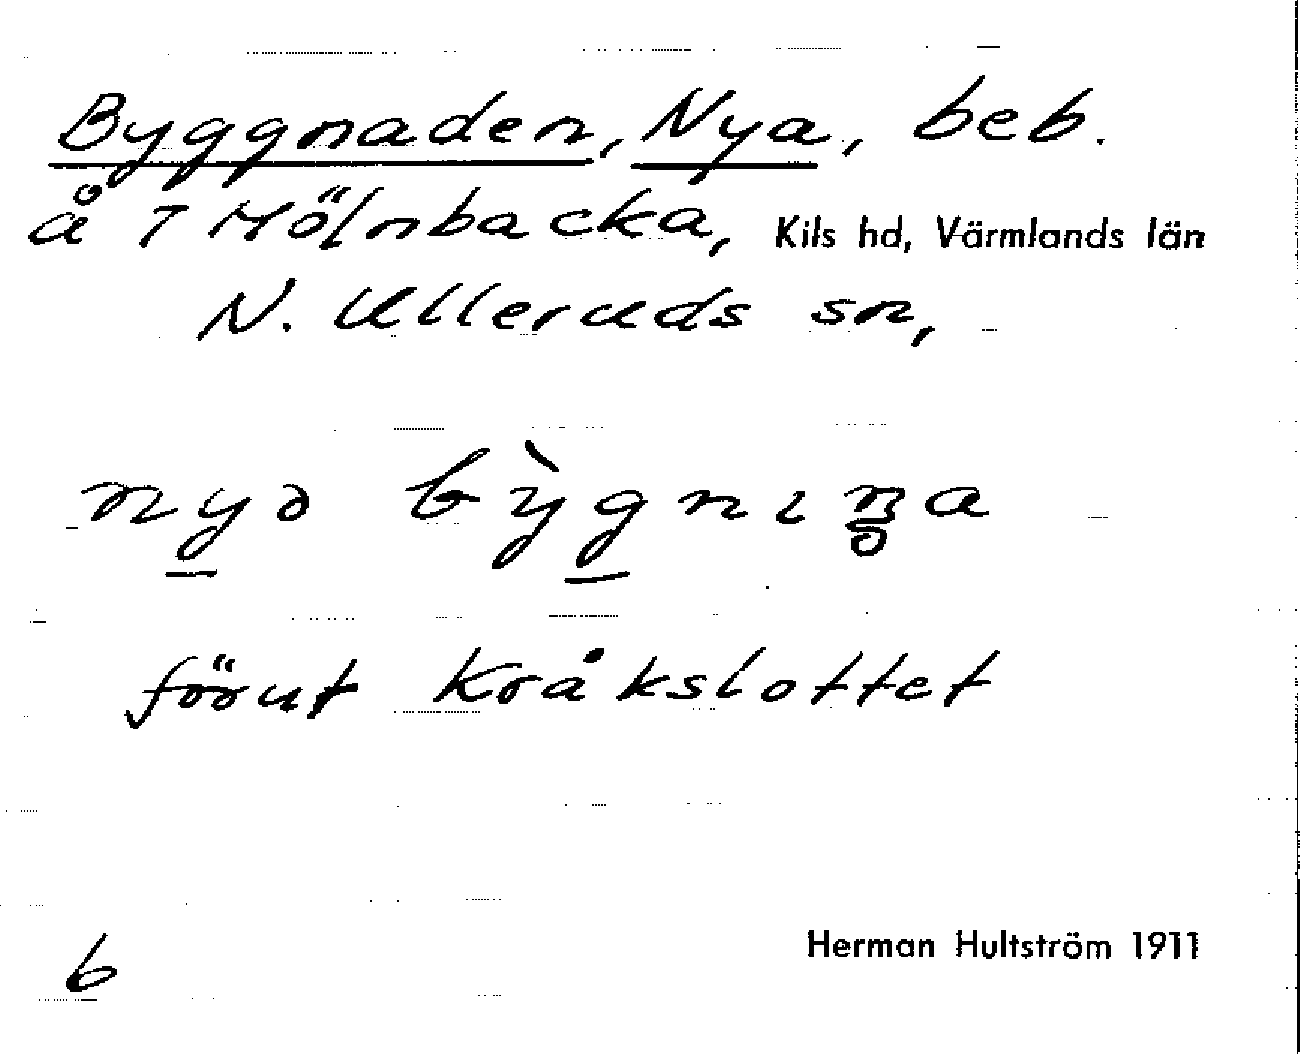 Byggnaden, Nya, beb.
å 7 Mölnbacka, Kils hd, Värmlands län
N. Ulleruds sn,
nyə bỳgnına
förut Kråkslottet
Herman Hultström 1911
6